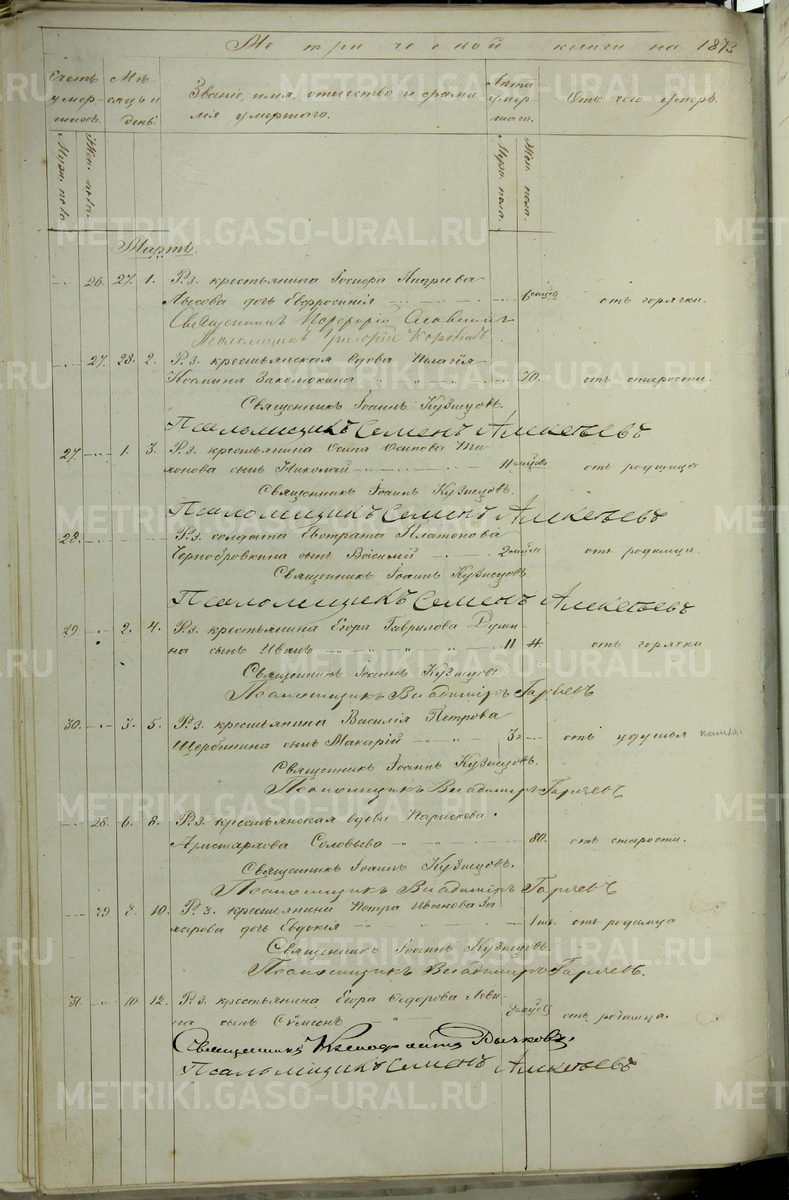 Метрической книги на 1873
Счетъ умершихъ.
Мѣсяцъ и день.
Званіе, имя, отчество и фамилія умершаго.
Лѣта умершаго.
Отъ чего умеръ.
Муж. пола.
Жен. пола.
Муж. пола.
Жен. пола.
Мартъ.
26. 27. 1. Р. з. крестьянина Андреева
Лысова дочь Евфросинія отъ горячки.
Священникъ Порфирій Славнинъ
Псаломщикъ Григорій
27. 28. 2. Р. з. крестьянская вдова Пелагія
Козмина 70. отъ старости.
Священникъ Іоаннъ Кузнецовъ.
Псаломщикъ Семенъ Аликѣевъ
27. 1. 3. Р. з. крестьянина Осипова
сынъ Николай 11 отъ родимца
Священникъ Іоаннъ Кузнецовъ.
Псаломщикъ Семенъ Аликѣевъ
28. Р. з. солдата Евстрата Платонова
Чернобровкина сынъ Василій 2 отъ родимца.
Священникъ Іоаннъ Кузнецовъ.
Псаломщикъ Семенъ Аликѣевъ
29 2. 4. Р. з. крестьянина Егора Гаврилова
сынъ Иванъ 11 отъ горячки
Священникъ Іоаннъ Кузнецовъ
Псаломщикъ Владиміръ Гаряевъ
30. 3. 5. Р. з. крестьянина Василія Петрова
Щербинина сынъ Макарій 3 отъ удушья
Священникъ Іоаннъ Кузнецовъ.
Псаломщикъ Владиміръ Гаряевъ
28. 6. 8. Р. з. крестьянская вдова
Аристархова Соловьева 80. отъ старости.
Священникъ Іоаннъ Кузнецовъ.
Псаломщикъ Владиміръ Гаряевъ
29 8. 10. Р. з. крестьянина Петра Иванова За-
харова дочь Евдокія отъ родимца
Священникъ Іоаннъ Кузнецовъ.
Псаломщикъ Владиміръ Гаряевъ.
31. 10. 12. Р. з. крестьянина Егора Ѳедорова
сынъ Сѵмеонъ отъ родимца.
Священникъ Ксенофонтъ Дычковъ.
Псаломщикъ Семенъ Аликѣевъ
METRIKI.GASO-URAL.RU